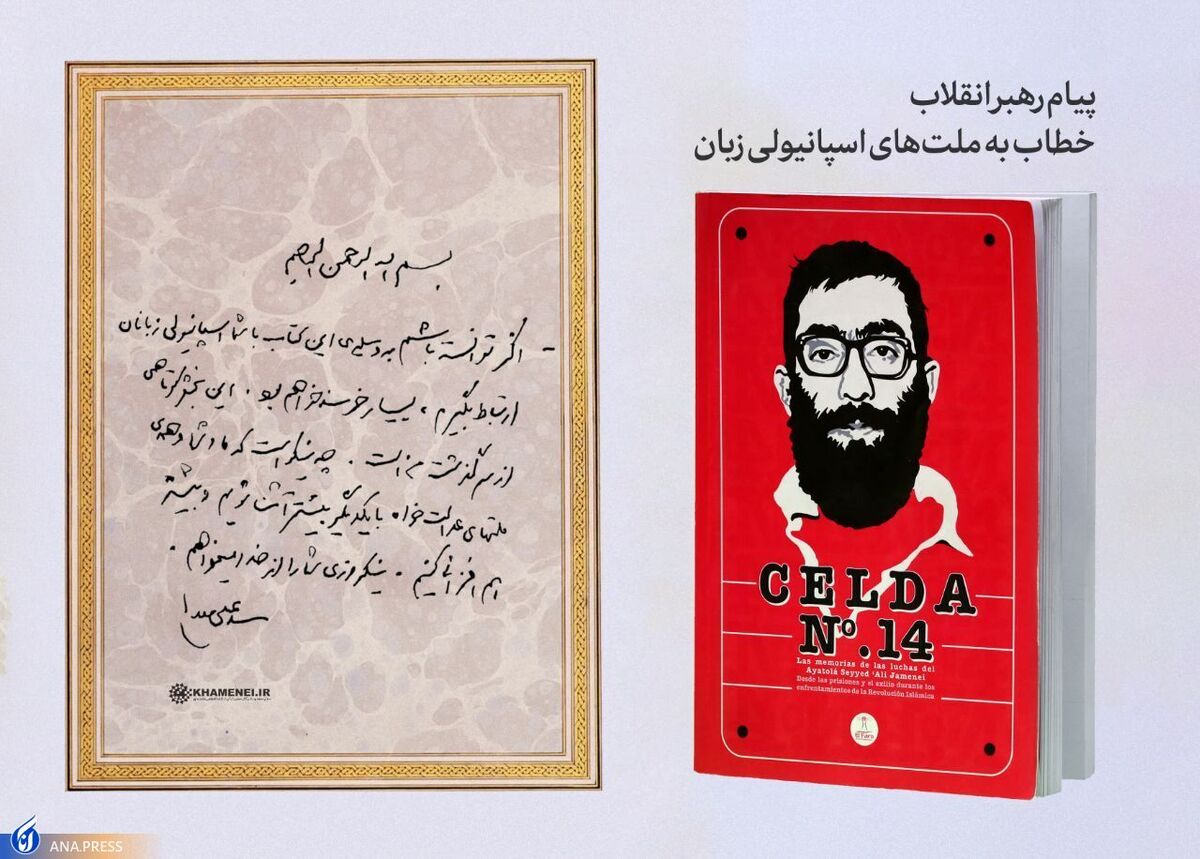 پیام رهبر انقلاب
خطاب به ملت‌های اسپانیولی زبان
بسم الله الرحمن الرحیم
- اگر توانسته باشم به وسیله‌ی این کتاب با شما اسپانیولی زبانان
ارتباط بگیرم، بسیار خرسند خواهم بود. این بخش کوتاهی
از سرگذشت من است. چه نیکو است که ما و شما و همه‌ی
ملتهای عدالت‌خواه با یکدیگر بیشتر آشنا شویم و بیشتر
هم‌افزائی کنیم. نیکروزی شما را از خدا میخواهم.
سید علی خامنه‌ای
KHAMENEI.IR
CELDA
Nº.14
Las memorias de las luchas del
Ayatolá Seyyed 'Ali Jamenei
Desde las prisiones y el exilio durante los
enfrentamientos de la Revolución Islámica
El Faro
ANA.PRESS